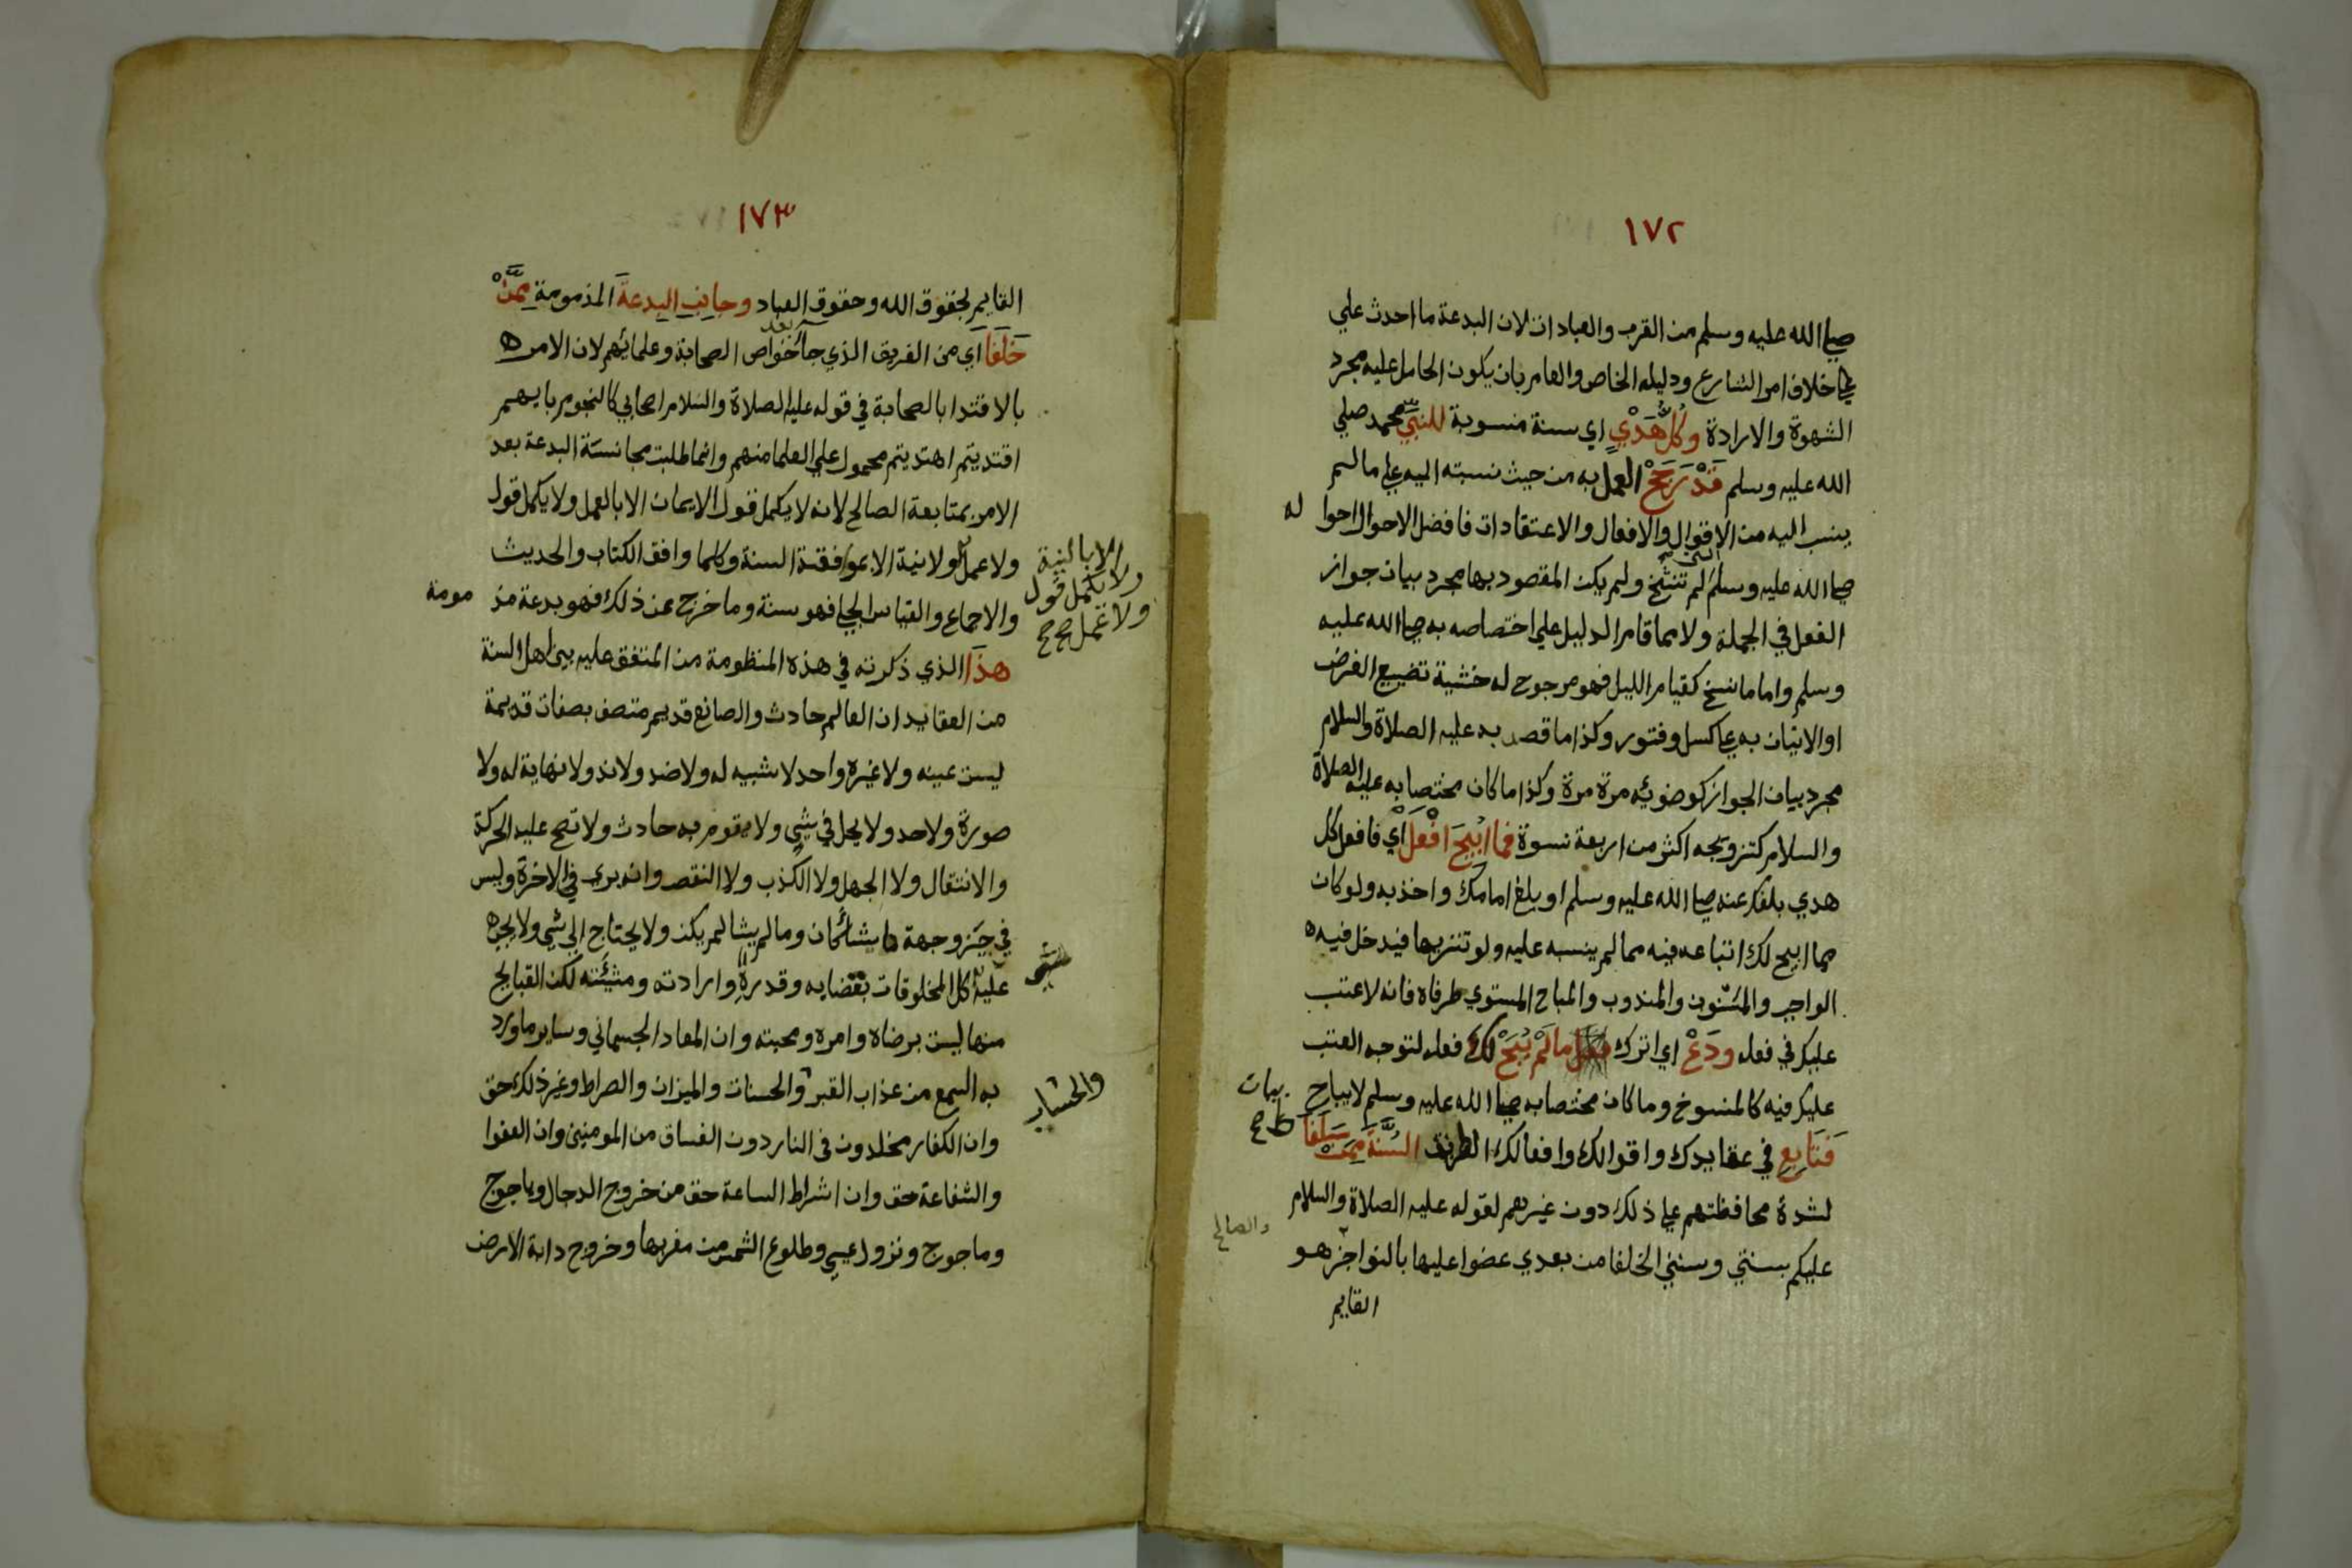 ١٧٢
صلى الله عليه وسلم من القرب والعبادات لان البدعة ما احدث علي
علي خلاف امر الشارع ودليله الخاص والعام بان يكون الحامل عليه مجرد
الشهوة والارادة وكُلُّ هَدْيٍ اي سنة منسوبة للنبيّ محمد صلي
الله عليه وسلم قَدْ رَجَحْ العمل به من حيث نسبته اليه علي مالم
ينسب اليه من الاقوال والافعال والاعتقادات فافضل الاحوال احوا له
صلى الله عليه وسلم التي لم تنسخ ولم يكن المقصود بها مجرد بيان جواز
الفعل في الجملة ولا مما قام الدليل علي اختصاصه به صلى الله عليه
وسلم واما ما نسخ كقيام الليل فهو مرجوح له خشية تضييع الفرض
او الاتيان به علي كسل وفتور وكذا ما قصد به عليه الصلاة والسلام
مجرد بيان الجواز كوضوئه مرة مرة وكذا ما كان مختصا به عليه الصلاة
والسلام كتزويجه اكثر من اربعة نسوة فما ابيحَ افْعَلْ اي فافعل كل
هدي بلغك عنه صلى الله عليه وسلم او بلغ امامك واخذ به ولو كان
مما ابيح لك اتباعه فيه مما لم ينسبه عليه ولو تنزيها فيدخل فيه
الواجب والمسنون والمندوب والمباح المستوي طرفاه فانه لا عتب
عليك في فعله ودَعْ اي اترك ما لَمْ يُبَحْ لك فعله لتوجه العتب
عليك فيه كالمنسوخ وما كان مختصا به صلى الله عليه وسلم لا يباح
بيان
فَتَابِعِ في عقايدك واقوالك وافعالك الطريقة السُّنَّةَ مِمَّنْ سَلَفَا
لشدة محافظتهم علي ذلك دون غيرهم لقوله عليه الصلاة والسلام
والصالح
عليكم بسنتي وسنة الخلفا من بعدي عضوا عليها بالنواجز هو
القايم
١٧٣
القايم بحقوق الله وحقوق العباد وجانِبِ البِدعةَ المذمومة مِمَّنْ
خَلَفَا اي من الفريق الذي جا بعد خواص الصحابة وعلمائهم لان الامر
بالاقتدا بالصحابة في قوله عليه الصلاة والسلام اصحابي كالنجوم بايهم
اقتديتم اهتديتم محمول علي العلما منهم وانما طلبت مجانسة البدعة بعد
الامر بمتابعة الصالح لانه لا يكمل قول الايمان الا بالعمل ولا يكمل قول
ولا عمل ولا نية الا بموافقة السنة وكلما وافق الكتاب والحديث
الا بالنية
ولا يكمل قول
ولا عمل صح
والاجماع والقياس الجلي فهو سنة وما خرج عن ذلك فهو بدعة مذ مومة
هذَا الذي ذكرته في هذه المنظومة من المتفق عليه بين اهل السنة
من العقايد ان العالم حادث والصانع قديم متصف بصفات قديمة
ليست عينه ولا غيره واحد لا شبيه له ولا ضد ولا ند ولا نهاية له ولا
صورة ولا حد ولا يحل في شي ولا يقوم به حادث ولا تصح عليه الحركة
والانتقال ولا الجهل ولا الكذب ولا النقص وانه يرى في الاخرة وليس
في حيز وجهة ما يشا كان وما لم يشا لم يكن ولا يحتاج الي شي ولا يجب
عليه شي كل المخلوقات بقضايه وقدره وارادته ومشيئته لكن القبايح
منها ليست برضاه وامره ومحبته وان المعاد الجسماني وساير ما ورد
به السمع من عذاب القبر والحسنات والميزان والصراط وغير ذلك حق
والحساب
وان الكفار مخلدون في النار دون الفساق من المومنين وان العفوا
والشفاعة حق وان اشراط الساعة حق من خروج الدجال وياجوج
وماجوج ونزول عيسي وطلوع الشمس من مغربها وخروج دابة الارض